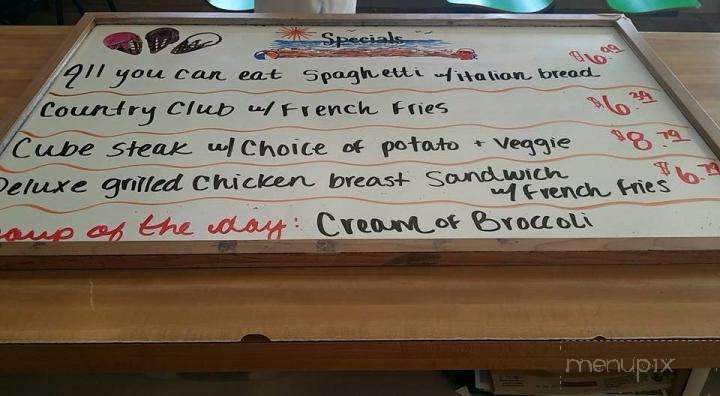 Specials
All you can eat Spaghetti w/italian bread $6.09
Country Club w/ French Fries $6.39
Cube steak w/ Choice of potato + Veggie $8.79
Deluxe grilled Chicken breast Sandwich $6.79
w/ French fries
Soup of the day: Cream of Broccoli
menupix